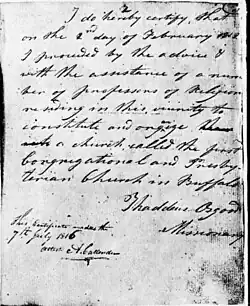 I do hereby certify, that
on the 2nd day of February
I proceeded by the advice &
with the assistance of a num
ber of professors of Religion
residing in this vicinity to
constitute and
a church called the first
Congregational and Presby
terian Church in Buffalo
Thaddeus Osgood
Missionary
This Certificate
7th July 1816
A. Callender